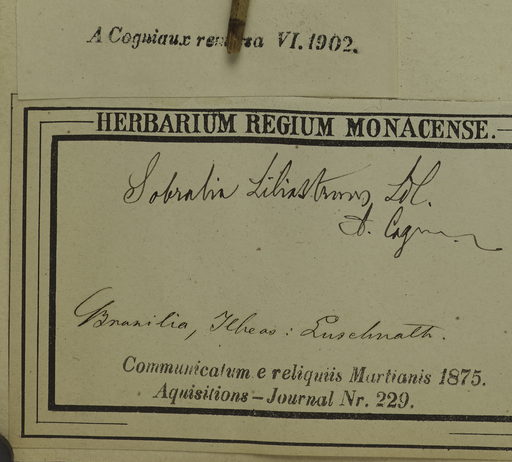 A Cogniaux revisa VI.1902.
HERBARIUM REGIUM MONACENSE.
Sobralia Liliastrum Ldl.
A. Cogn.
Brasilia, Ilheos: Luschnath.
Communicatum e reliquiis Martianis 1875.
Aquisitions-Journal Nr. 229.